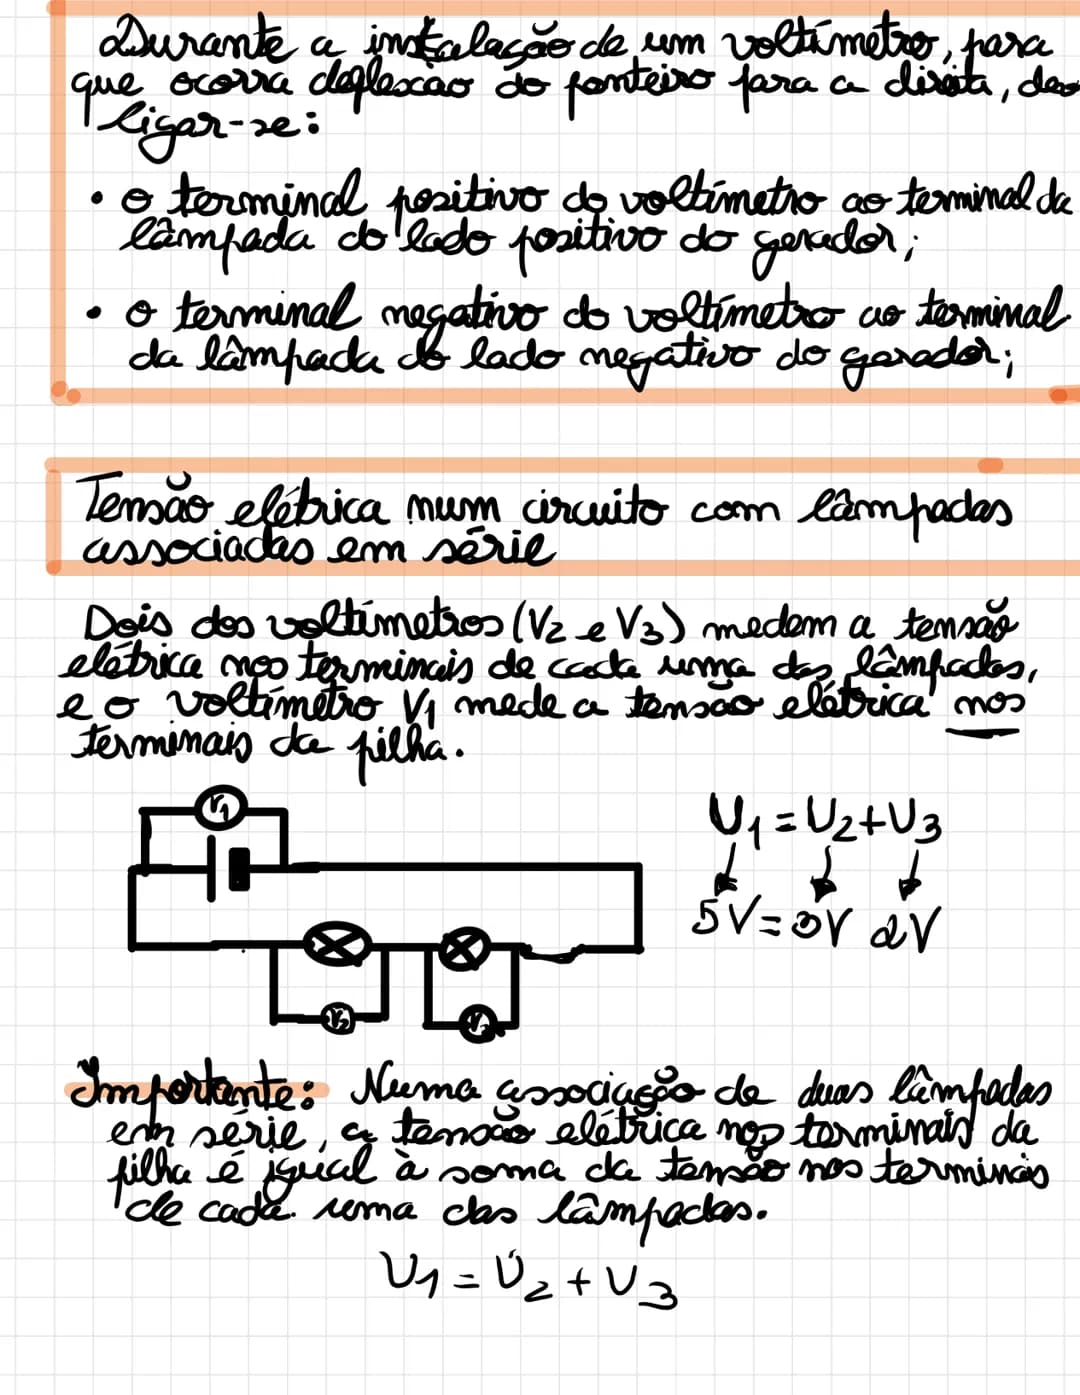 Durante a instalação de um voltímetro, para
que ocorra deflexão do ponteiro para a direita, deve
ligar-se:
• o terminal positivo do voltímetro ao terminal da
lâmpada do lado positivo do gerador;
• o terminal negativo do voltímetro ao terminal
da lâmpada do lado negativo do gerador;
Tensão elétrica num circuito com lâmpadas
associadas em série
Dois dos voltímetros (V2 e V3) medem a tensão
elétrica nos terminais de cada uma das lâmpadas,
e o voltímetro V1 mede a tensão elétrica nos
terminais da pilha.
V1
U1 = U2+U3
5V=3V 2V
V2
V3
Importante: Numa associação de duas lâmpadas
em série, a tensão elétrica nos terminais da
pilha é igual à soma da tensão nos terminais
de cada uma das lâmpadas.
U1 = U2 + U3